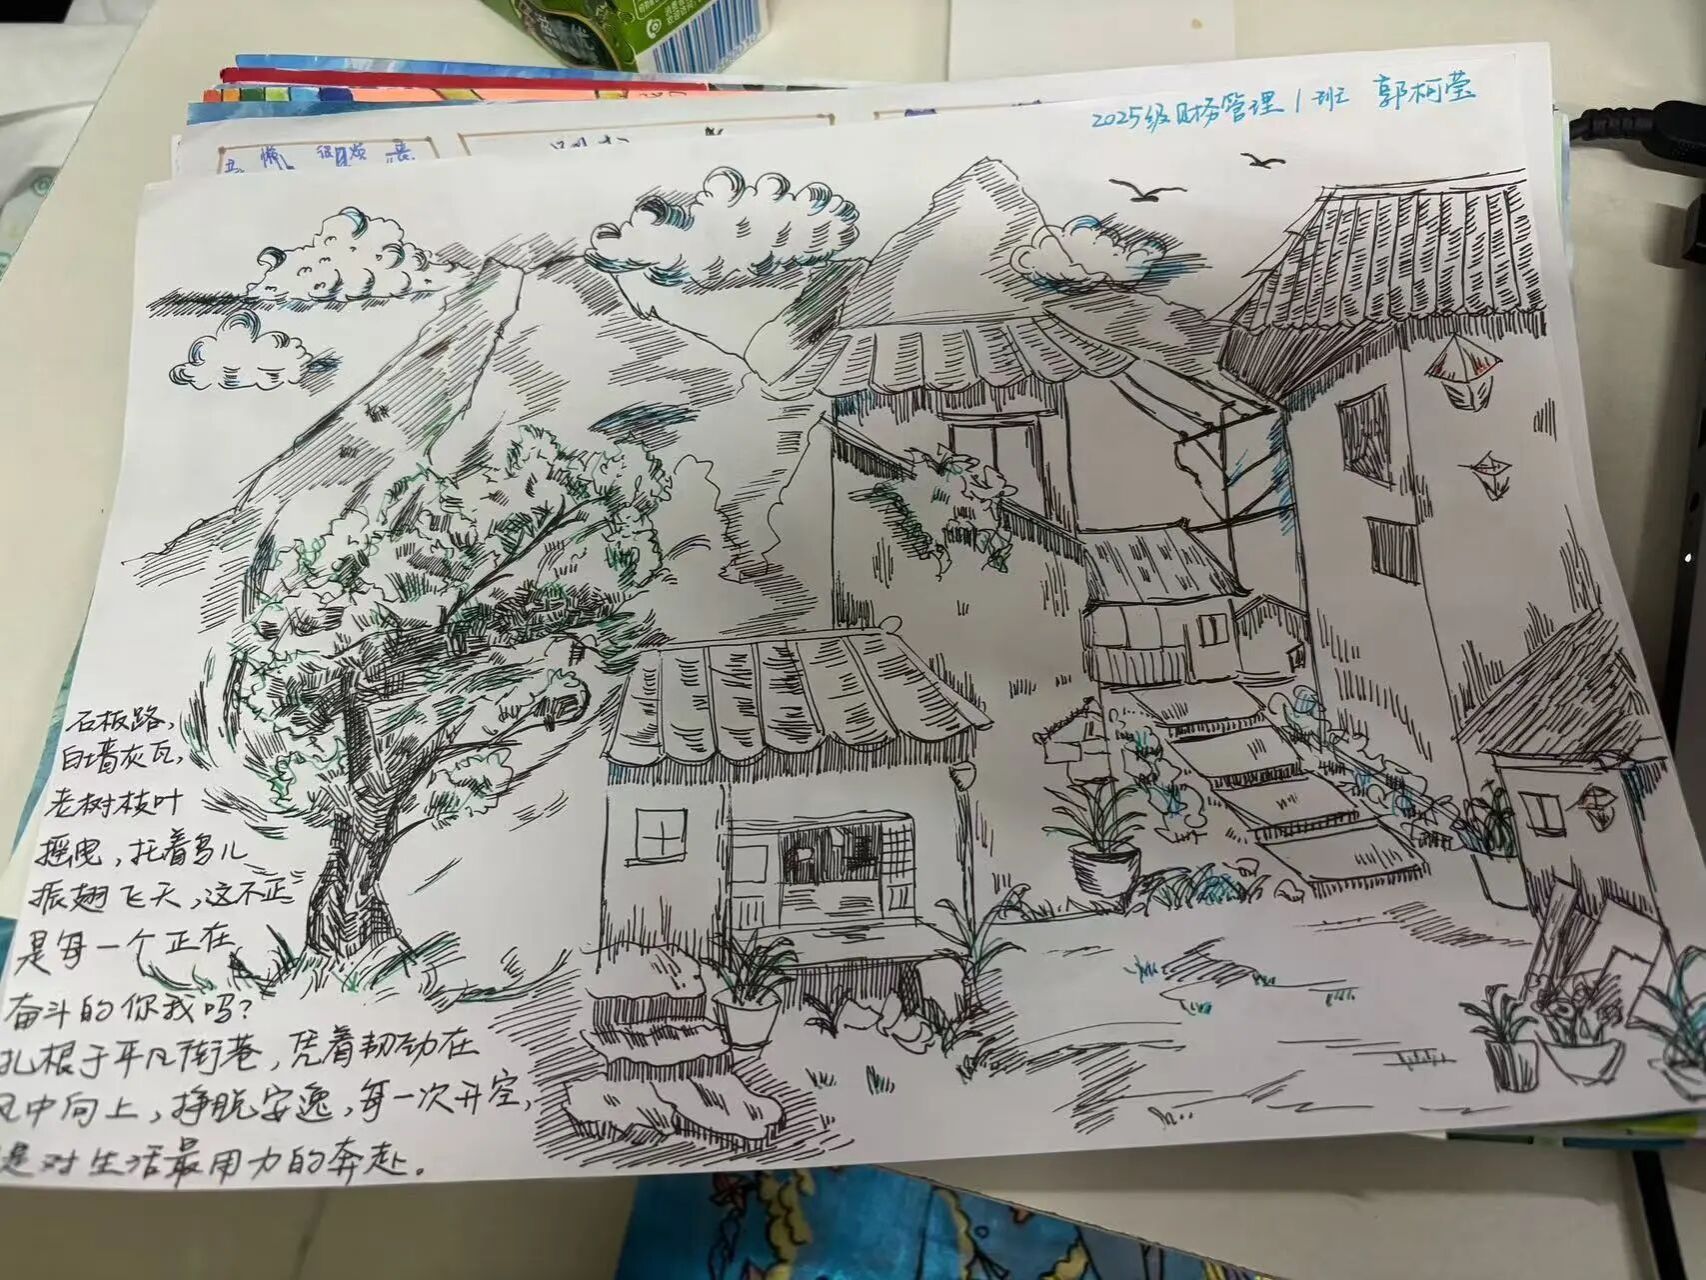 2025级财务管理1班 郭柯莹
石板路,
白墙灰瓦,
老树枝叶
摇曳,托着鸟儿
振翅飞天,这不正
是每一个正在
奋斗的你我吗?
扎根于平凡街巷,凭着韧劲在
风中向上,挣脱安逸,每一次开空,
是对生活最用力的奔赴。